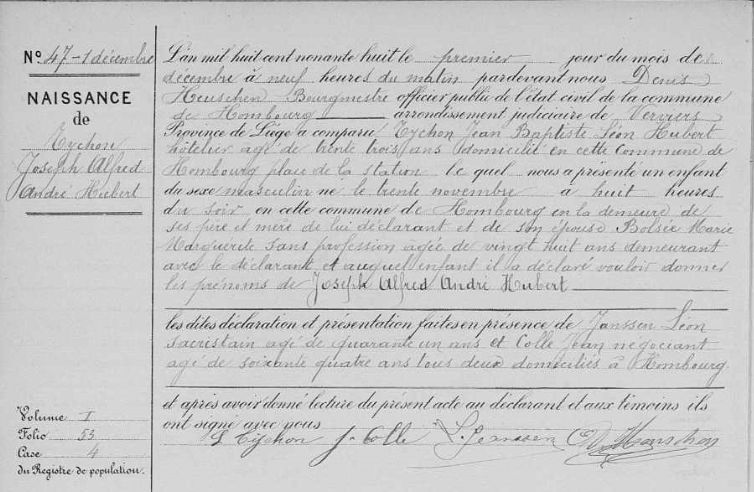 N° 47 - 1 décembre
NAISSANCE
de
Tychon
Joseph Alfred
André Hubert
L'an mil huit cent nonante huit le premier jour du mois de
décembre à neuf heures du matin pardevant nous Denis
Heuschen Bourgmestre officier public de l'état civil de la commune
de Hombourg arrondissement judiciaire de Verviers
Province de Liège a comparu Tychon Jean Baptiste Léon Hubert
hôtelier agé de trente trois ans domicilié en cette Commune de
Hombourg place de la station le quel nous a présenté un enfant
du sexe masculin né le trente novembre à huit heures
du soir en cette commune de Hombourg en la demeure de
ses père et mère de lui déclarant et de son épouse Bolsée Marie
Marguerite sans profession agée de vingt huit ans demeurant
avec le déclarant et auquel enfant il a déclaré vouloir donner
les prénoms de Joseph Alfred André Hubert
les dites déclaration et présentation faites en présence de Janssen Léon
sacristain agé de quarante un ans et Colle Jean négociant
agé de soixante quatre ans tous deux domiciliés à Hombourg
et après avoir donné lecture du présent acte au déclarant et aux témoins ils
ont signé avec nous
L Tychon J. Colle L. Janssen Heuschen
Volume I
Folio 53
Case 4
du Registre de population.